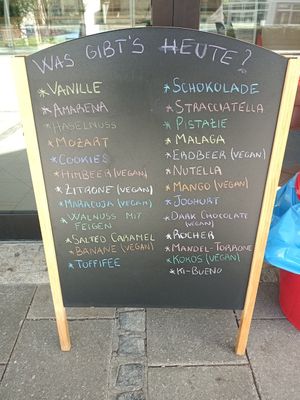 WAS GIBT'S HEUTE?
*VANILLE
*AMARENA
*HASELNUSS
*MOZART
*COOKIES
*HIMBEER (VEGAN)
*ZITRONE (VEGAN)
*MARACUJA (VEGAN)
*WALNUSS MIT
FEIGEN
*SALTED CARAMEL
*BANANE (VEGAN)
*TOFFIFEE
*SCHOKOLADE
*STRACCIATELLA
*PISTAZIE
*MALAGA
*ERDBEER (VEGAN)
*NUTELLA
*MANGO (VEGAN)
*JOGHURT
*DARK CHOCOLATE
(VEGAN)
*ROCHER
*MANDEL-TORRONE
*KOKOS (VEGAN)
*KI-BUENO